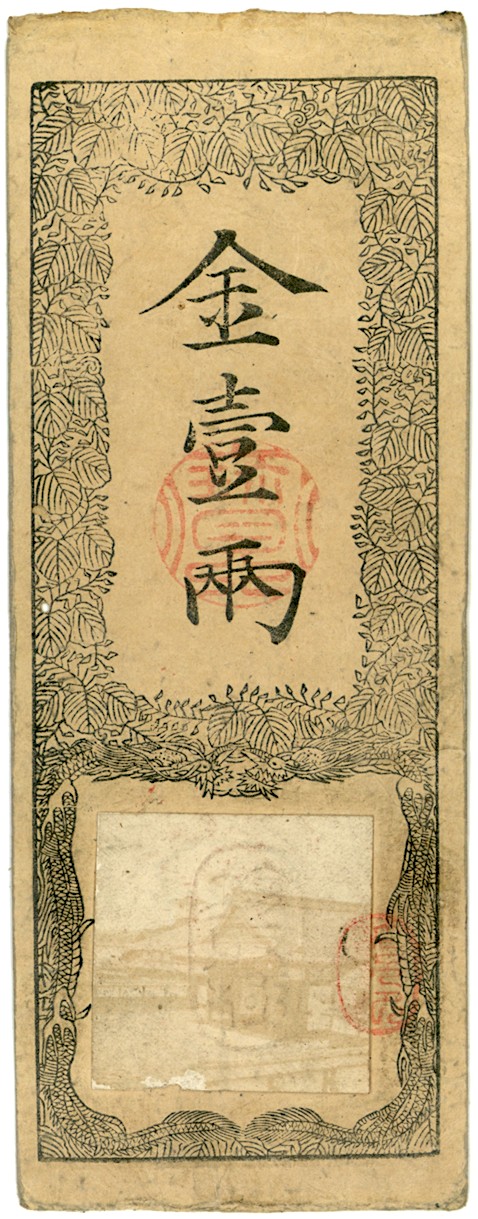 金壹兩